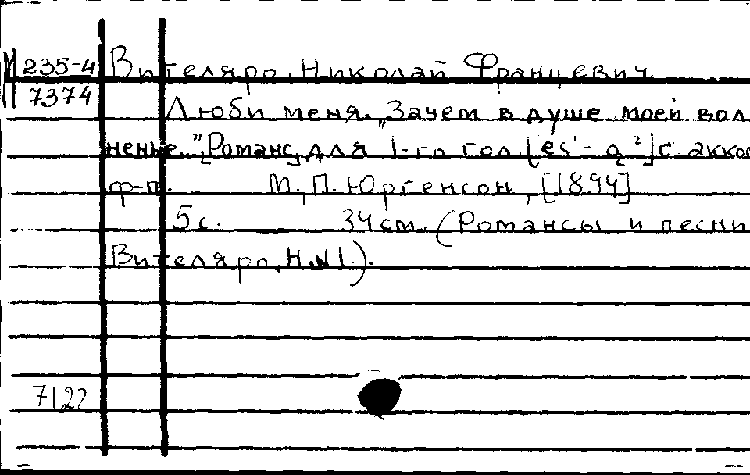 М 235-4 Вителяро, Николай Францевич
7374
Люби меня. „Зачем в душе моей вол
ненье." [Романс] для 1-го гол [es¹- g²] с акко
ф-п. М., П. Юргенсон, [1894]
5 с. 34 см. (Романсы и песни
Вителяро, Н. №1).
7122